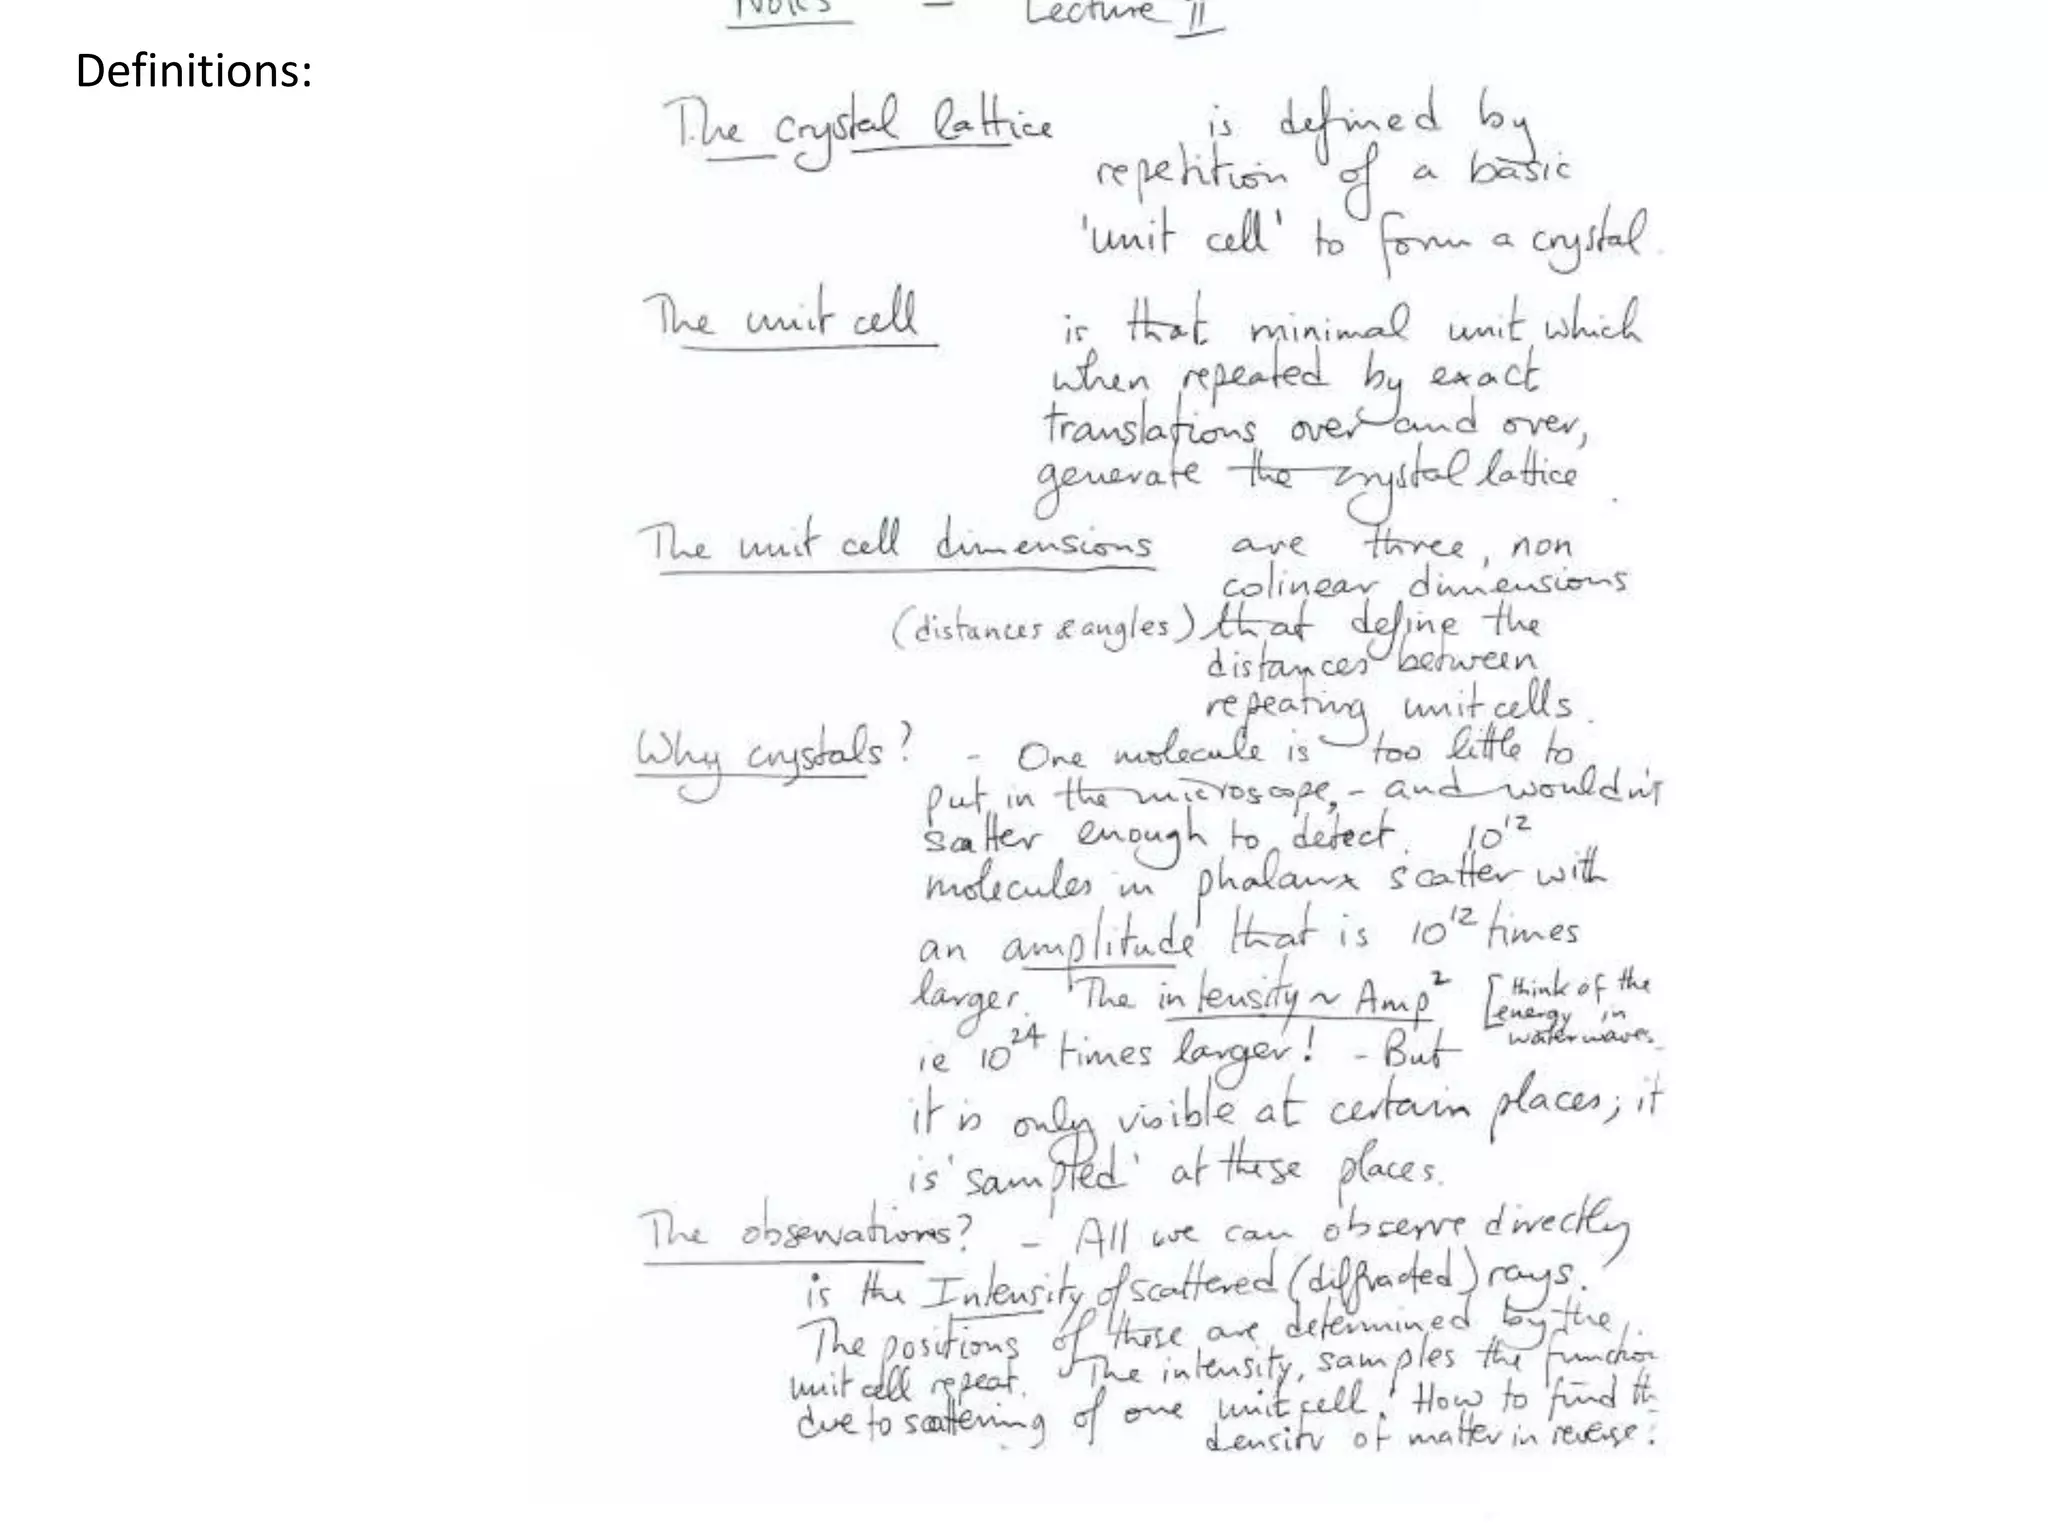 Notes - Lecture II
Definitions:
The crystal lattice is defined by
repetition of a basic
'unit cell' to form a crystal.
The unit cell is that minimal unit, which
when repeated by exact
translations over and over,
generate the crystal lattice.
The unit cell dimensions are three, non
colinear dimensions
(distances & angles) that define the
distances between
repeating unit cells.
Why crystals? - One molecule is too little to
put in the microscope, - and wouldn't
scatter enough to detect. 10¹²
molecules in phalanx scatter with
an amplitude that is 10¹² times
larger. The intensity ~ Amp² [think of the
energy in
water waves.
ie 10²⁴ times larger! - But
it is only visible at certain places; it
is 'sampled' at these places.
The observations? - All we can observe directly
is the Intensity of scattered (diffracted) rays.
The positions of these are determined by the
unit cell repeat. The intensity, samples the function
due to scattering of one unit cell. How to find th
density of matter in reverse: